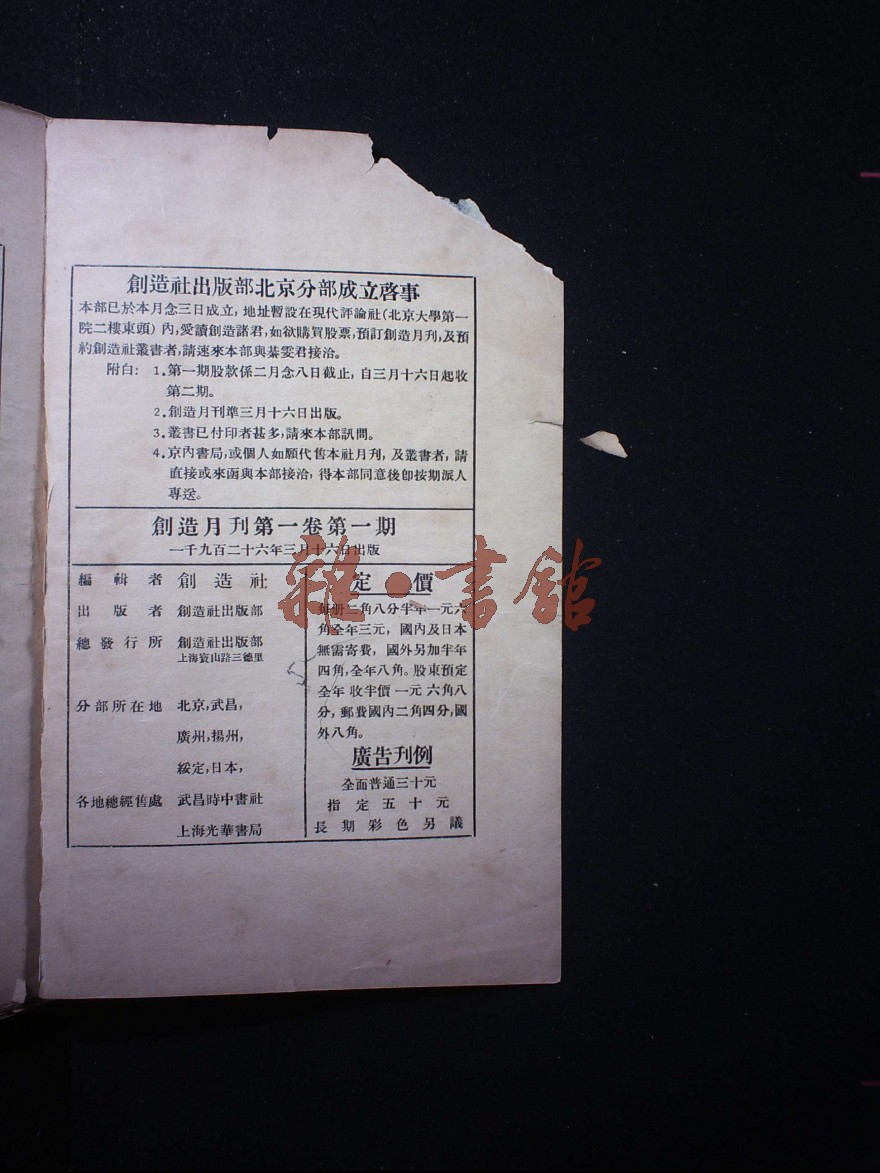 創造社出版部北京分部成立啓事
本部已於本月念三日成立，地址暫設在現代評論社（北京大學第一
院二樓東頭）內，愛讀創造諸君，如欲購買股票，預訂創造月刊，及預
約創造社叢書者，請速來本部與綦雯君接洽。
附白：1. 第一期股款係二月念八日截止，自三月十六日起收
第二期。
2. 創造月刊準三月十六日出版。
3. 叢書已付印者甚多，請來本部訊問。
4. 京內書局，或個人如願代售本社月刊，及叢書者，請
直接或來函與本部接洽，得本部同意後卽按期派人
專送。
創造月刊第一卷第一期
一千九百二十六年三月十六日出版
編輯者 創造社
出版者 創造社出版部
總發行所 創造社出版部
上海寶山路三德里
分部所在地 北京，武昌，
廣州，揚州，
綏定，日本，
各地總經售處 武昌時中書社
上海光華書局
定價
每册二角八分半年一元六
角全年三元，國內及日本
無需寄費，國外另加半年
四角，全年八角。股東預定
全年收半價一元六角八
分，郵費國內二角四分，國
外八角。
廣告刊例
全面普通三十元
指定五十元
長期彩色另議
雜·書館